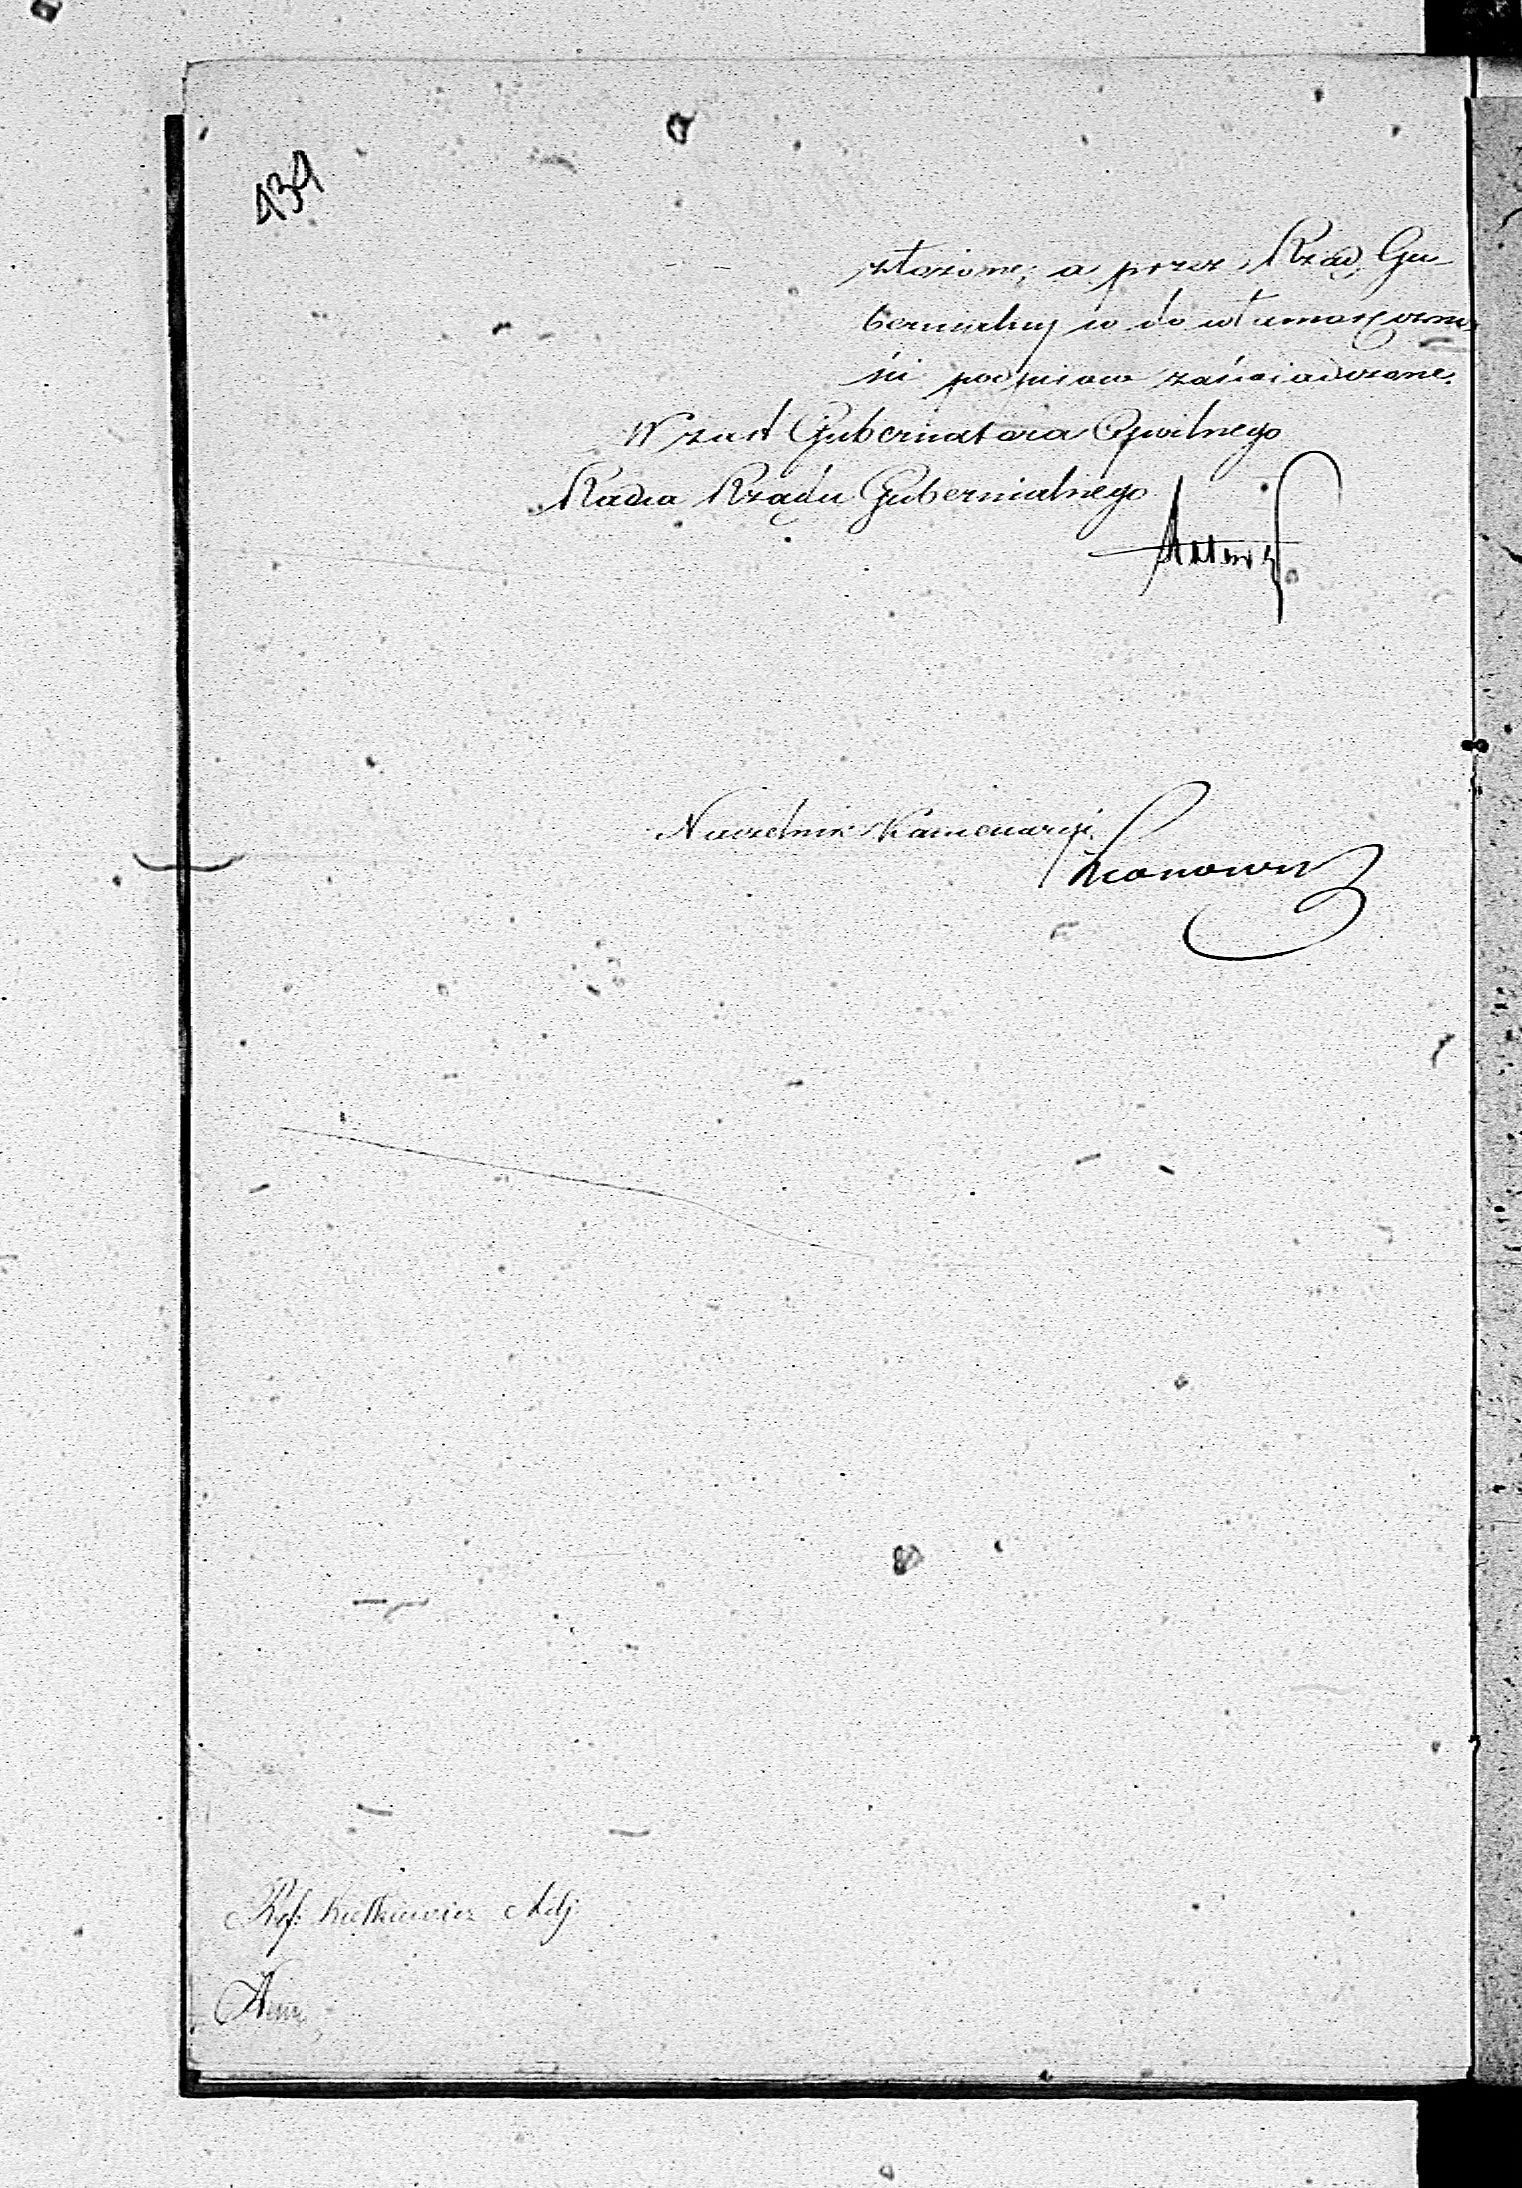 439
złożone; a przez Rząd Gu-
bernialny co do własnoręczno-
ści podpisów zaświadczone.
W zast Gubernatora Cywilnego
Radca Rządu Gubernialnego
Naczelnik Kancellaryi
Ref: Adj